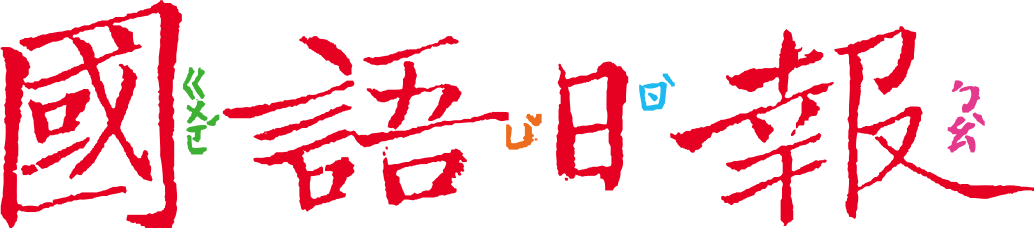 國ㄍㄨㄛˊ語ㄩˇ日ㄖˋ報ㄅㄠˋ